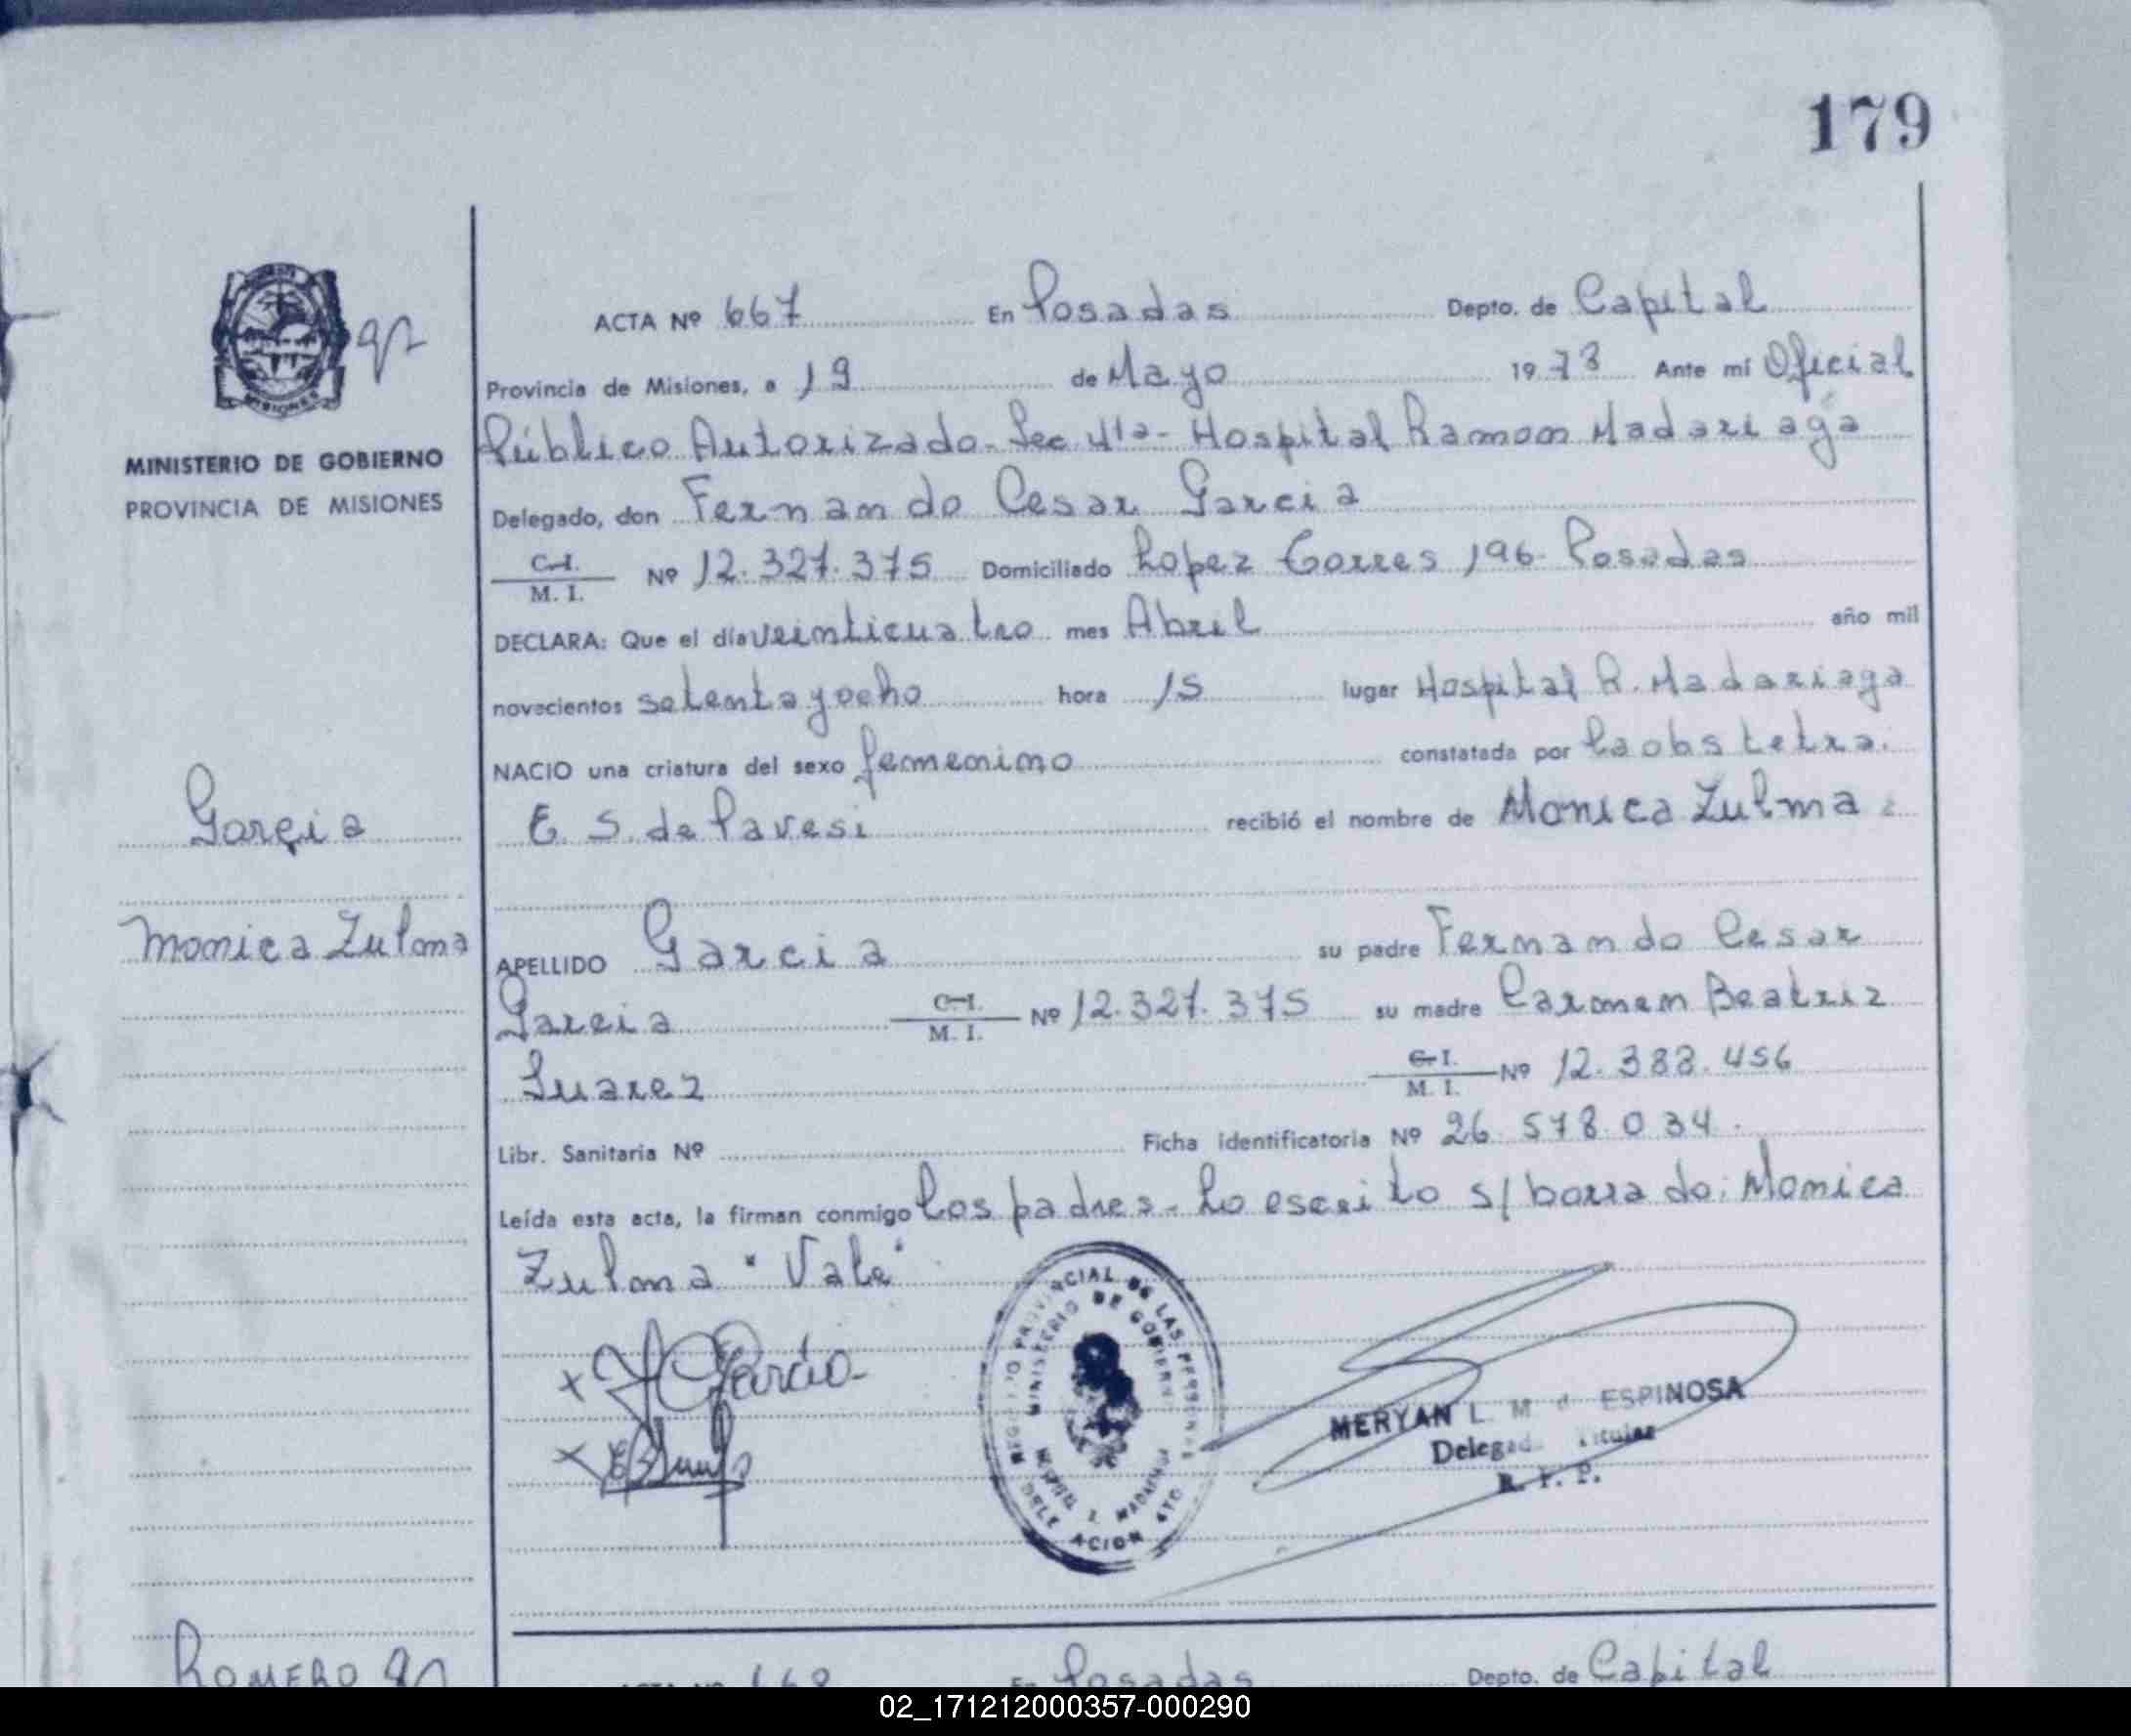 179
ACTA Nº 667 En Posadas Depto. de Capital
Provincia de Misiones, a 19 de Mayo 1978 Ante mí Oficial
Público Autorizado - Sec 4ta - Hospital Ramon Madariaga
Delegado, don Fernando Cesar Garcia
C.I.
M. I. Nº 12.327.375 Domiciliado Lopez Torres 196 - Posadas
DECLARA: Que el día veinticuatro mes Abril año mil
novecientos setenta y ocho hora 15 lugar Hospital R. Madariaga
NACIO una criatura del sexo femenino constatada por la obstetra.
E. S. de Pavesi recibió el nombre de Monica Zulma
APELLIDO Garcia su padre Fernando Cesar
Garcia C.I. M. I. Nº 12.327.375 su madre Carmen Beatriz
Suarez C.I. M. I. Nº 12.388.456
Libr. Sanitaria Nº Ficha identificatoria Nº 26.578.034.
Leída esta acta, la firman conmigo los padres - Lo escrito s/ borrado: Monica
Zulma "Vale"
MINISTERIO DE GOBIERNO
PROVINCIA DE MISIONES
MISIONES
Garcia
Monica Zulma
x Garcia
x
REGISTRO PROVINCIAL DE LAS PERSONAS
MINISTERIO DE GOBIERNO
DELEGACION 4TO
MERYAN L. M. d ESPINOSA
Delegada Titular
R. P. P.
ROMERO
ACTA Nº 668 En Posadas Depto. de Capital
02_171212000357-000290